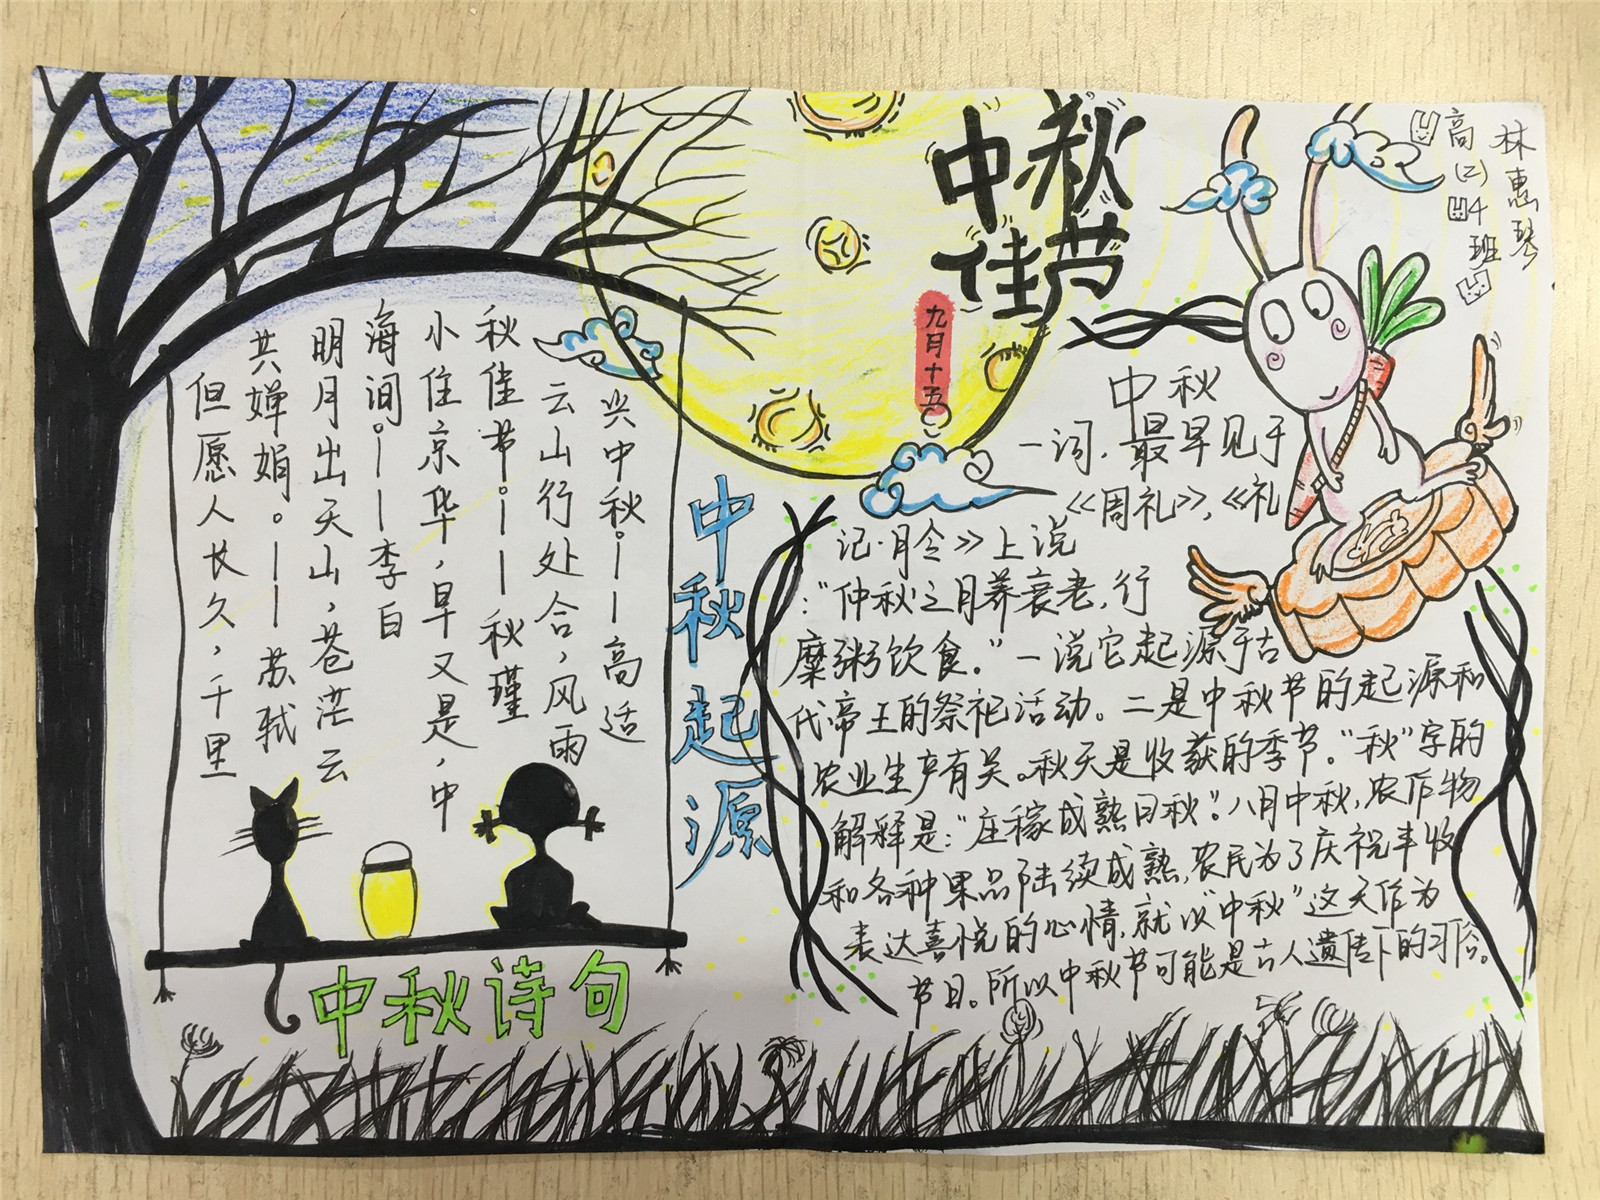 中秋
佳节
九月十五
林惠琴
高(2)4班
但愿人长久，千里
共婵娟。——苏轼
明月出天山，苍茫云
海间。——李白
小住京华，早又是，中
秋佳节。——秋瑾
云山行处合，风雨
兴中秋。——高适
中秋诗句
中秋起源
中秋
一词，最早见于
《周礼》，《礼
记·月令》上说
：“仲秋之月养衰老，行
糜粥饮食。”一说它起源于古
代帝王的祭祀活动。二是中秋节的起源和
农业生产有关。秋天是收获的季节。“秋”字的
解释是：“庄稼成熟曰秋”。八月中秋，农作物
和各种果品陆续成熟，农民为了庆祝丰收
表达喜悦的心情，就以“中秋”这天作为
节日。所以中秋节可能是古人遗传下的习俗。